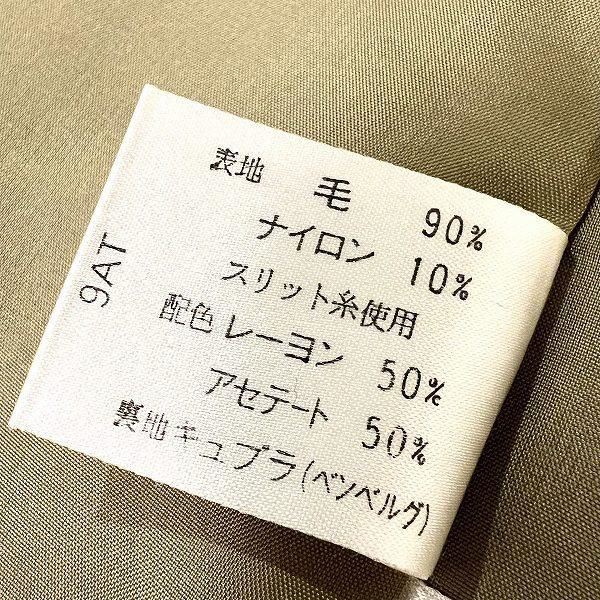 表地 毛 90%
ナイロン 10%
スリット糸使用
配色 レーヨン 50%
アセテート 50%
裏地キュプラ(ベンベルグ)
9AT